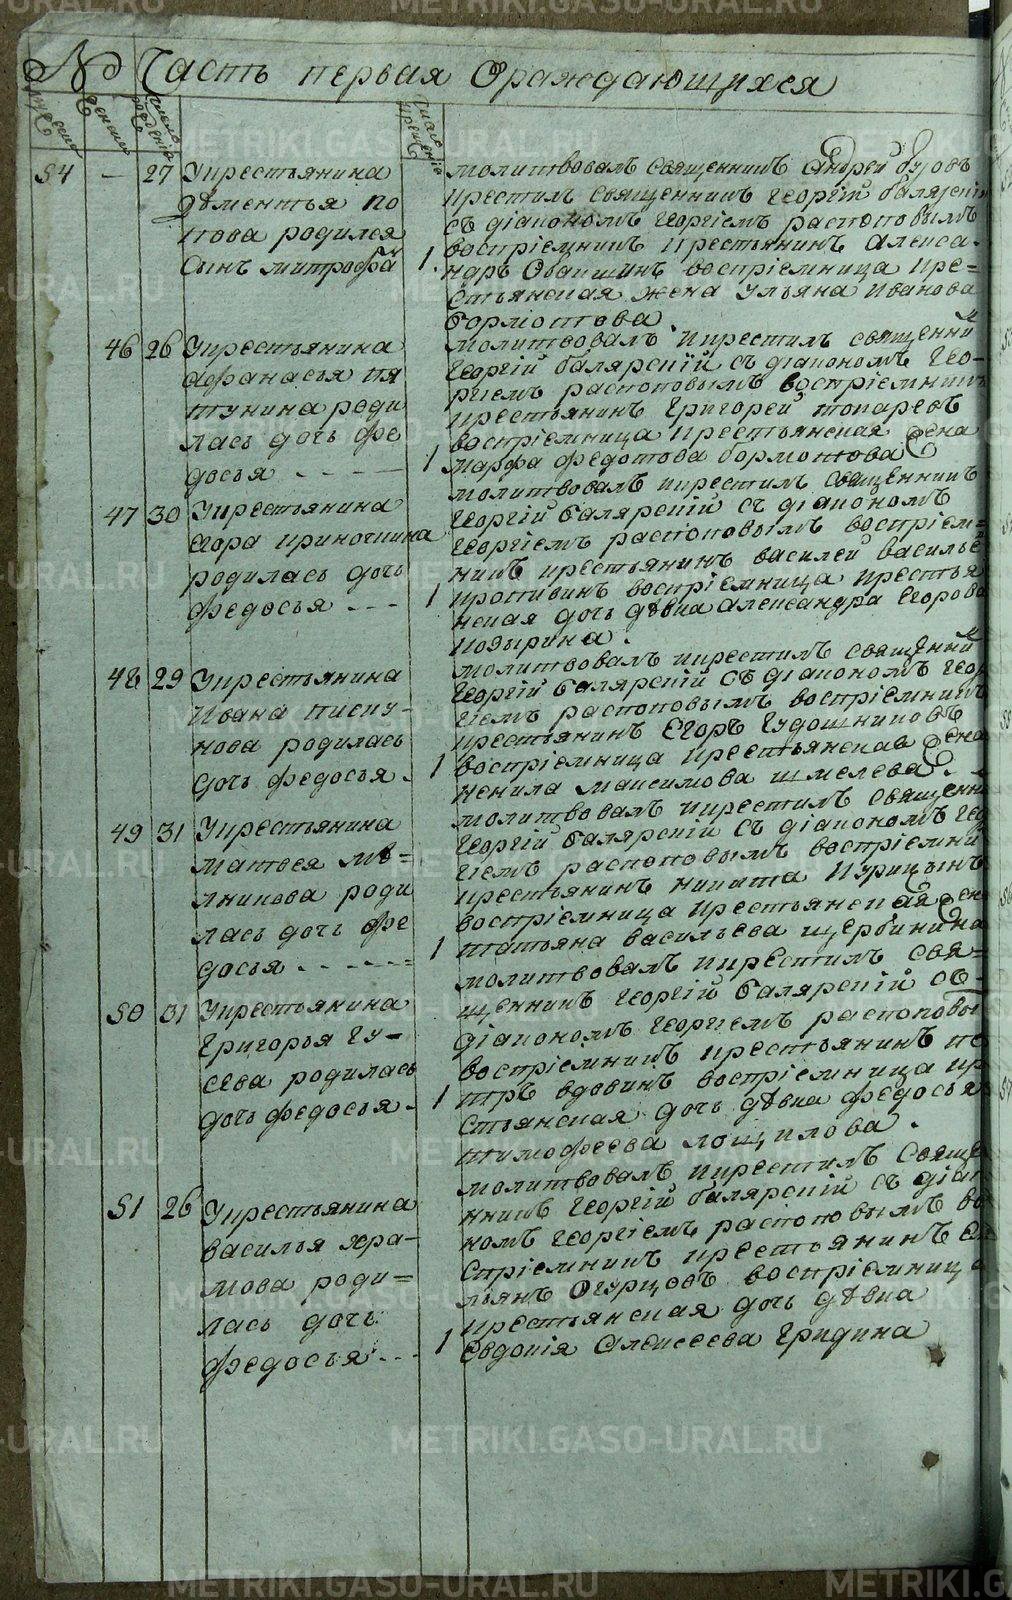 № Часть первая Ораждающихся
мужеска
женска
число рождения
число крещения
54 — 27 Укрестьянина
Дементья по
пова родился
сынъ митрофа 1
молитвовалъ священникъ Андрей
крестилъ священникъ георгій балярскій
съ діакономъ георгіемъ распоповымъ
воспріемникъ крестьянинъ алекса-
ндръ воспріемница кре=
стьянская жена ульяна иванова
бормотова
46 26 Укрестьянина
афанасья пя
тунина роди
лась дочь фе
досья 1
молитвовалъ икрестилъ священни
георгій балярскій съ діакономъ гео-
ргіемъ распоповымъ воспріемникъ
крестьянинъ григорей токаревъ
воспріемница крестьянская жена
марфа федотова бормотова
47 30 Укрестьянина
егора
родилась дочь
федосья 1
молитвовалъ икрестилъ священникъ
георгій балярскій съ діакономъ
георгіемъ распоповымъ воспріем=
никъ крестьянинъ василей васильe
воспріемница крестья
нская дочь дѣвка александра егорова
48 29 Укрестьянина
Ивана писку-
нова родилась
дочь федосья 1
молитвовалъ икрестилъ священни
георгій балярскій съ діакономъ геор
гіемъ распоповымъ воспріемникъ
крестьянинъ егоръ гудошниковъ
воспріемница крестьянская жена
ненила максимова шмелева
49 31 Укрестьянина
матвея мѣ=
лникова роди
лась дочь фе
досья 1
молитвовалъ икрестилъ священни
георгій балярскій съ діакономъ гео
гіемъ распоповымъ воспріемни
крестьянинъ никита курицынъ
воспріемница крестьянская жен
татьяна васильева щербинина
50 31 Укрестьянина
григорья гу-
сева родилась
дочь федосья 1
молитвовалъ икрестилъ свя=
щенникъ георгій балярскій съ
діакономъ георгіемъ распоповы
воспріемникъ крестьянинъ пе
тръ вдовинъ воспріемница кр
стьянская дочь дѣвка федосья
тимофеева лощилова
51 26 Укрестьянина
василья хра-
мова роди=
лась дочь
федосья 1
молитвовалъ икрестилъ свяще
нникъ георгій балярскій съ діак
номъ георгіемъ распоповымъ во
спріемникъ крестьянинъ
льянъ огурцовъ воспріемница
крестьянская дочь дѣвка
евдокія алексеева гридина
METRIKI.GASO-URAL.RU